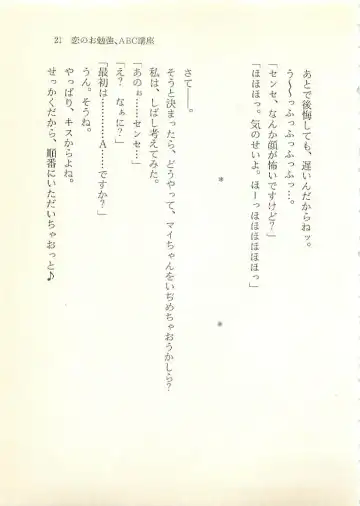 21　恋のお勉強、ABC講座
あとで後悔しても、遅いんだからねッ。
う〜〜っふっふっふっふっ…。
「センセ、なんか顔が怖いですけど?」
「ほほほっ。気のせいよ。ほーっほほほほほほっ」
＊
＊
さて――。
そうと決まったら、どうやって、マイちゃんをいぢめちゃおうかしら?
私は、しばし考えてみた。
「あのぉ……センセ…」
「え?　なぁに?」
「最初は………A…ですか?」
うん。そうね。
やっぱり、キスからよね。
せっかくだから、順番にいただいちゃおっと♪